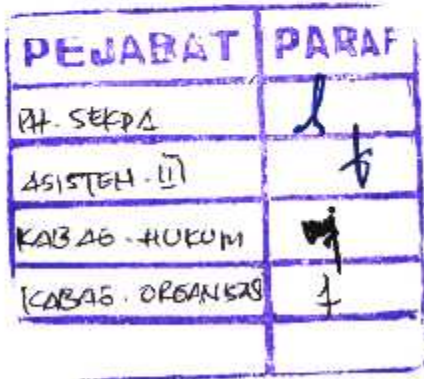 PEJABAT PARAF
PH. SEKDA
ASISTEN. III
KABAG. HUKUM
KABAG. ORGANISASI